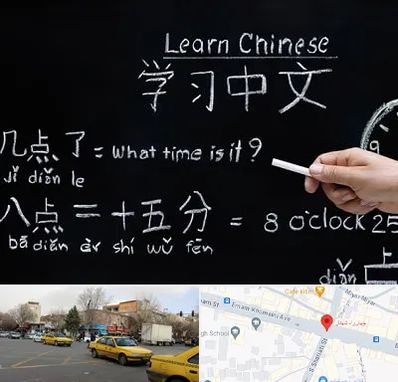 Learn Chinese
学习中文
几点了 = What time is it?
jǐ diǎn le
八点二十五分 = 8 o'clock 25
bā diǎn èr shí wǔ fēn
diǎn
9
Cafe
Emam Khomeini Ave
gh School
S Shariati St
چهارراه شهناز